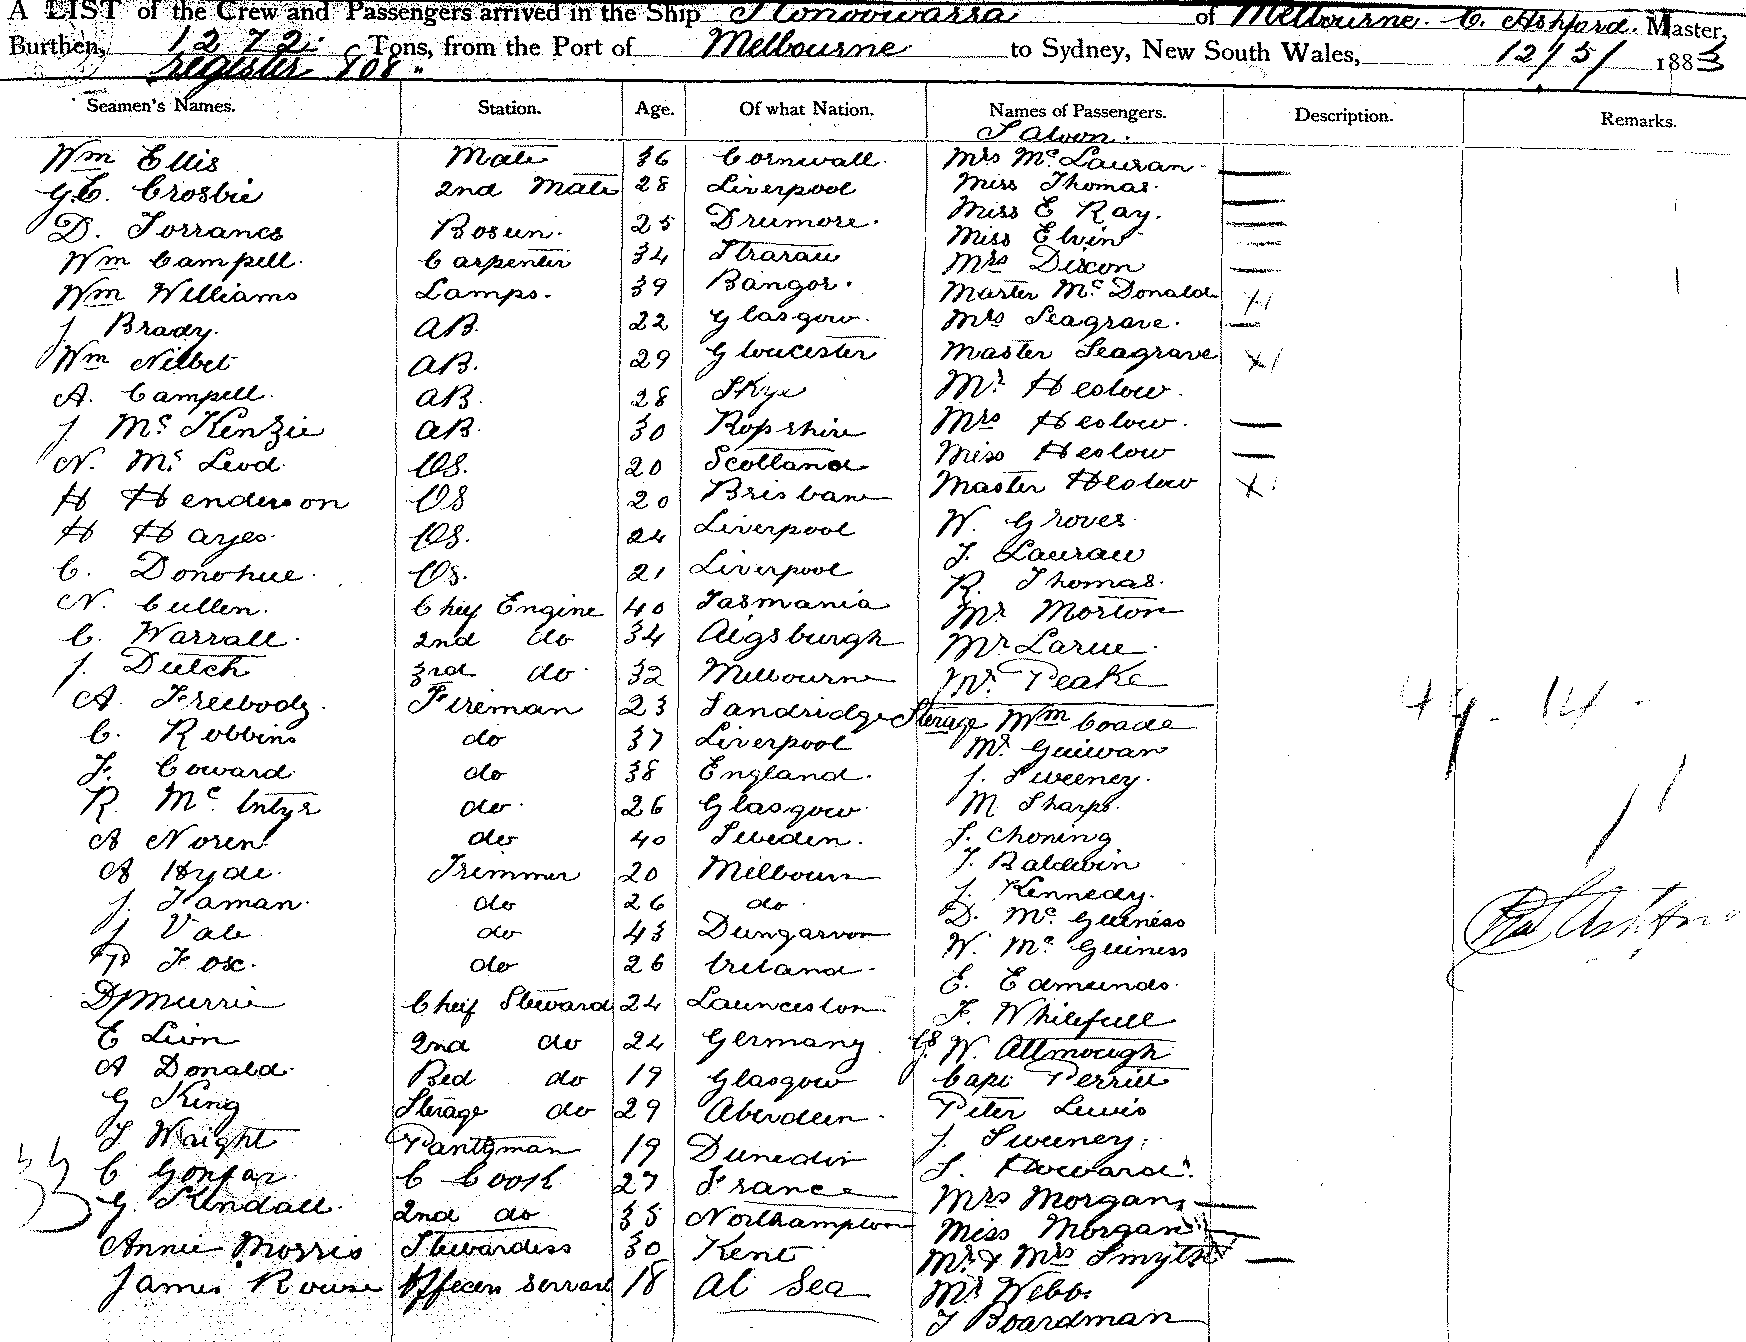 A LIST of the Crew and Passengers arrived in the Ship Konoowarra of Melbourne. C. Ashford. Master,
Burthen, 1272. Tons, from the Port of Melbourne to Sydney, New South Wales, 12/5/ 1883
register 808
Seamen's Names. Station. Age. Of what Nation. Names of Passengers. Description. Remarks.
Saloon.
Wm Ellis Mate 36 Cornwall. Mrs McLauran
G.C. Crosbie 2nd Mate 28 Liverpool Miss Thomas.
D. Torrance Bosun. 25 Drumore. Miss E Ray.
Miss Elvin
Wm Campell. Carpenter 34 Mrs Dixon
Wm Williams Lamps. 39 Bangor. Master McDonald
J Brady. AB. 22 Glasgow. Mrs Seagrave.
Wm Nilbet AB. 29 Gloucester Master Seagrave
A. Campell. AB. 28 Skye Mr Heslow.
J McKenzie AB. 30 Ropshire Mrs Heslow.
N. McLeod. OS. 20 Scotland Miss Heslow
H Henderson OS 20 Brisbane Master Heslow
H Hayes. OS. 24 Liverpool W. Groves.
C. Donohue. OS. 21 Liverpool J. Laurau
R. Thomas.
N. Cullen. Chief Engine 40 Tasmania Mr Morton
C. Warrall. 2nd do 34 Aigsburgh Mr Larue.
J. Dutch 3rd do 32 Melbourne Mr. Peake
A. Freebody. Fireman 23 Sandridge Sterage Wm Coade
C. Robbins do 37 Liverpool Mr. Guiwan
F. Coward do 38 England. J. Sweeney.
R. McIntyr do. 26 Glasgow. M Sharp.
A Noren do 40 Sweden. S. Choning
A Hyde. Trimmer 20 Melbourn J. Baldwin
J. Kennedy.
J. Taman. do 26 do. D. McGuiness
J Vale do 43 Dungarvon W. McGuiness
Fox. do 26 Ireland. E. Edmunds.
D Murrie Chief Steward 24 Launceston. F. Whilefull
E Lion 2nd do 24 Germany. G. W. Allmough
A Donald. Bed do 19 Glasgow Capt Perritt
G King Sterage do 29 Aberdeen. Peter Lewis
T Waight Pantryman 19 Dunedin J. Sweeney.
C Gonfar C Cook 27 France S. Howard.
G. Kendall. 2nd do 35 Northampton Mrs Morgan
Miss Morgan
Annie Morris Stewardess 30 Kent Mr. & Mrs Smyth
James Rouse Officers Servant 18 At Sea Mr Webb.
J Boardman